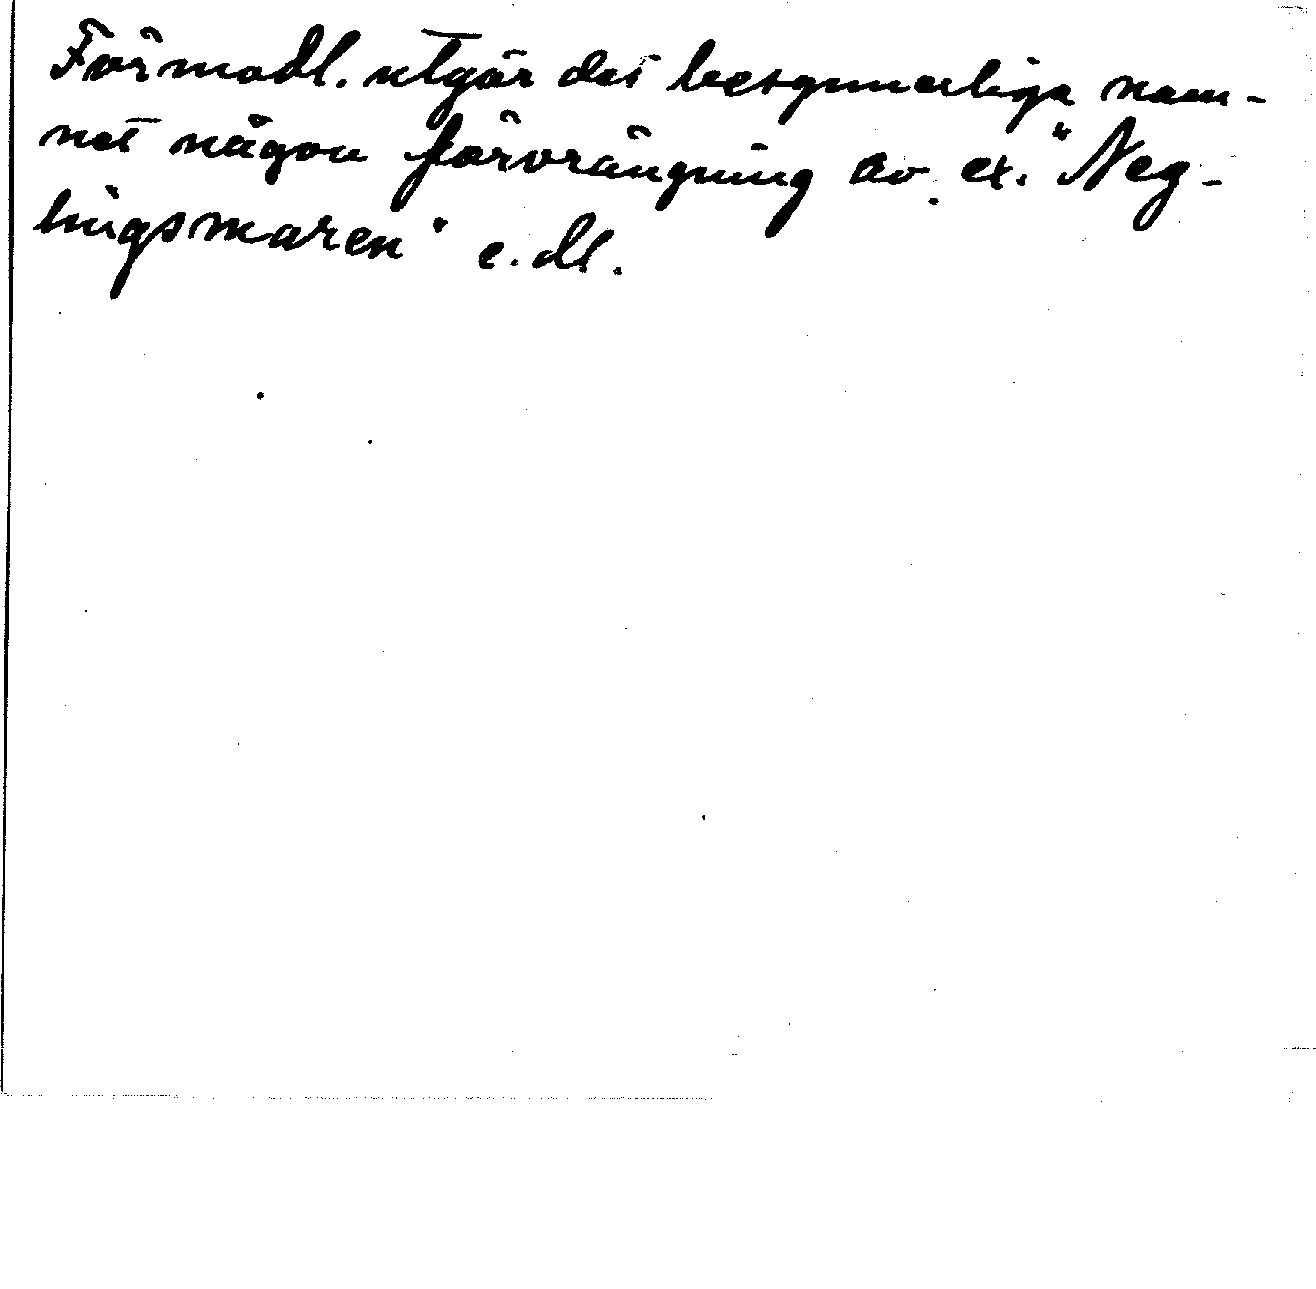 Förmodl. utgör det besynnerliga nam-
net någon förvrängning av ex. "Neg-
lingsmaren" e. dl.